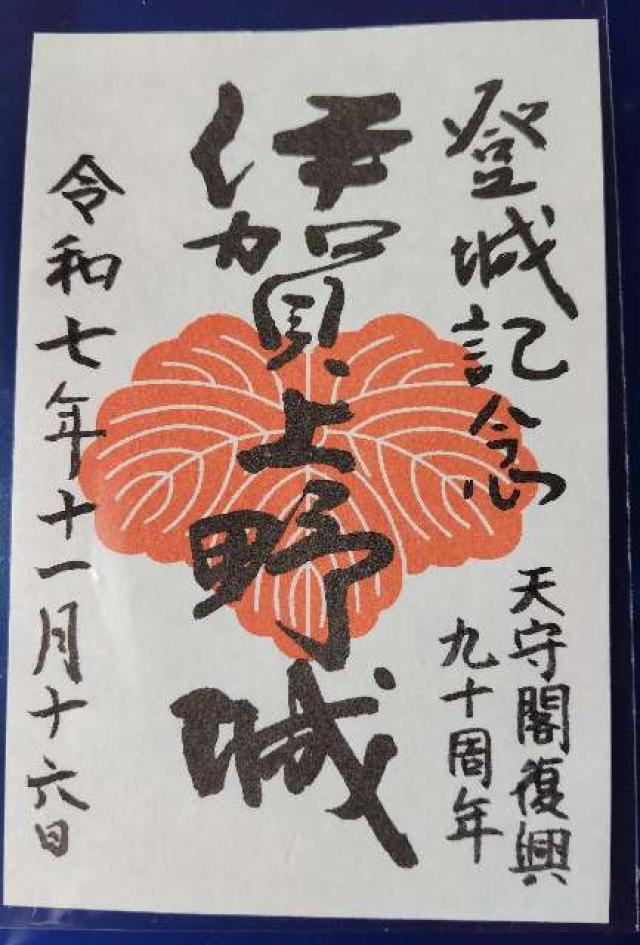 登城記念
天守閣復興
九十周年
伊賀上野城
令和七年十一月十六日